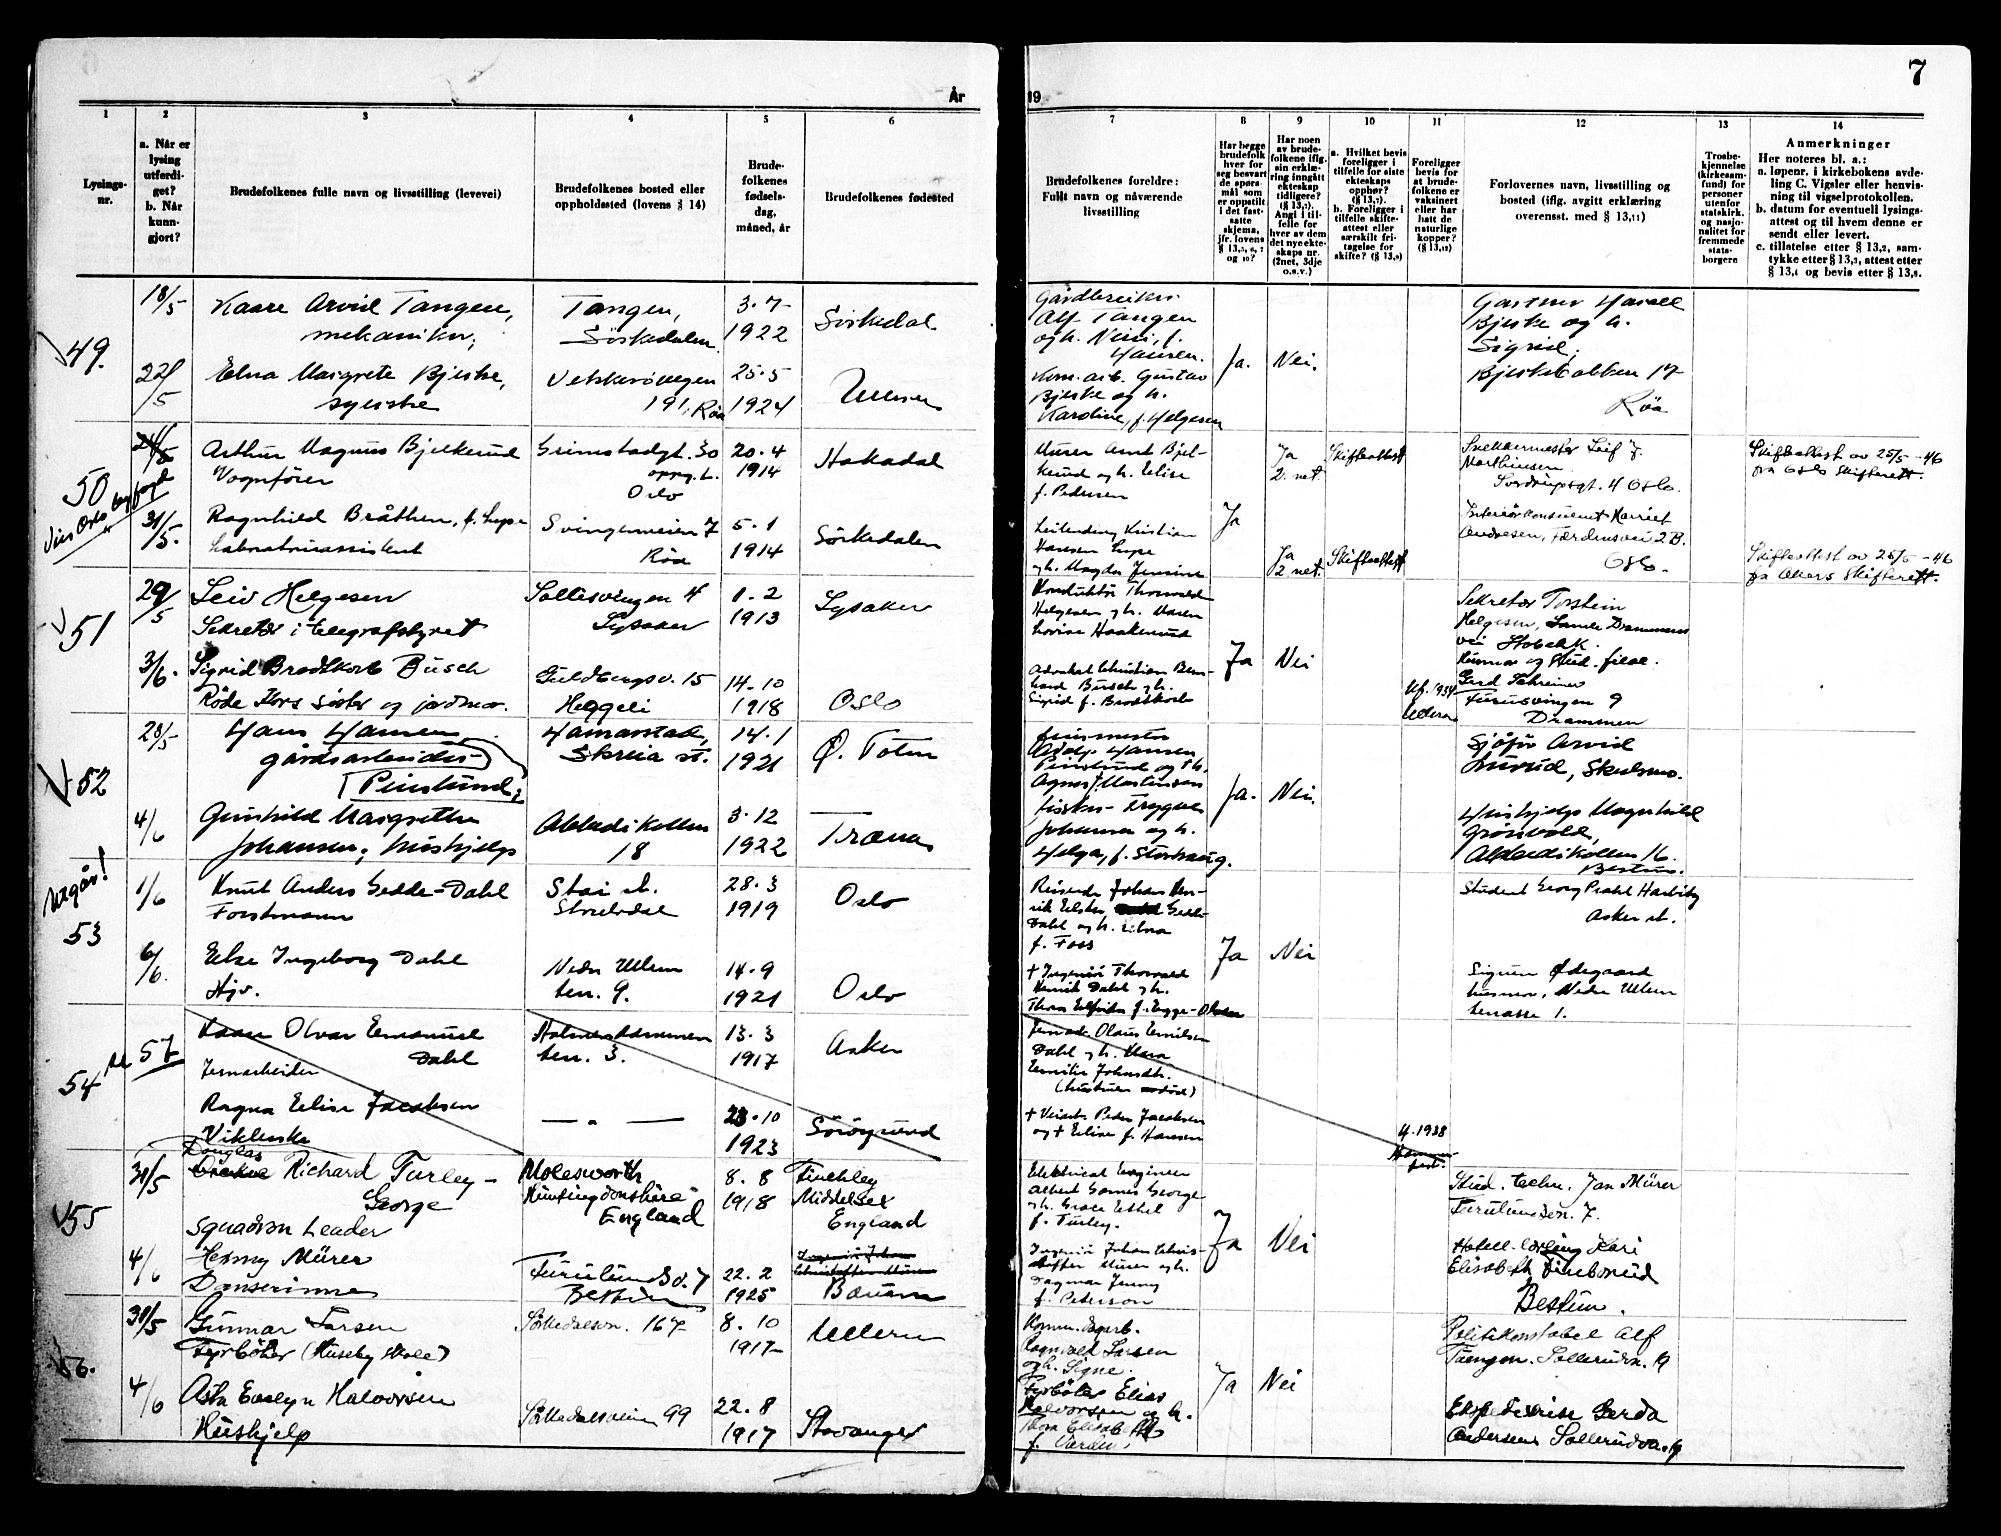 7
År
19
1
2
3
4
5
6
7
8
9
10
11
12
13
14
Lysings-
nr.
a. Når er
lysing
utferdi-
get?
b. Når
kunn-
gjort?
Brudefolkenes fulle navn og livsstilling (levevei)
Brudefolkenes bosted eller
oppholdssted (lovens § 14)
Brude-
folkenes
fødsels-
dag,
måned, år
Brudefolkenes fødested
Brudefolkenes foreldre:
Fullt navn og nåværende
livsstilling
Har begge
brudefolk
hver for
seg besvart
de spørs-
mål som
er oppstilt
i det fast-
satte
skjema,
jfr. lovens
og 10?
Har noen
av brude-
folkene iflg.
sin erklæ-
ring inngått
ekteskap
tidligere?
Angi i til-
felle for
hver av dem
det nye ekte-
skaps nr.
(2net, 3dje
o.s.v.)
a. Hvilket bevis
foreligger i
tilfelle for siste
ekteskaps
opphør?
b. Foreligger i
tilfelle skifte-
attest eller
særskilt fri-
tagelse for
skifte? (§ 13,9)
Foreligger
bevis for
at brude-
folkene er
vaksinert
eller har
hatt de
naturlige
kopper?
(§ 13,12)
Forlovernes navn, livsstilling og
bosted (iflg. avgitt erklæring
overensst. med § 13,11)
Trosbe-
kjennelse
(kirkesam-
fund) for
personer
utenfor
statskirk.
og nasjo-
nalitet for
fremmede
stats-
borgere
Anmerkninger
Her noteres bl. a.:
a. løpenr. i kirkebokens avde-
ling C. Vigsler eller henvis-
ning til vigselprotokollen.
b. datum for eventuell lysings-
attest og til hvem denne er
sendt eller levert.
c. tillatelse etter § 13,2, sam-
tykke etter § 13,3, attest etter
§ 13,4 og bevis etter § 13,8.
49.
18/5
Kaare Arvid Tangen,
mekaniker,
Tangen,
Sörkedalen
3. 7
1922
Sörkedal
Gårdbruker
Alf Tangen
og h.
Hansen.
Ja.
Nei.
Gartner
Bjerke og h.
Sigrid,
Bjerkebakken 17
Röa
Edna Margrete Bjerke,
syerske
191, Röa
25. 5
1924
Ullern
Kom. arb. Gustav
Bjerke og h.
Karoline, f. Helgesen
50
Arthur Magnus Bjelkerud
Vognfører
Grimstadgt. 30
oppg. L.
Oslo
20. 4
1914
Hakadal
Murer Arnt Bjel-
kerud og h. Elise
f. Pedersen
Ja
2. net.
Skifteattest
Snekkermester Leif
Marthinsen
Sverdrupsgt. 4 Oslo.
Skifteattest av 25/5 - 46
fra Oslo Skifterett.
31/5.
Ragnhild Bråthen, f.
Laboratorieassistent
Svingenveien 7
Röa
5. 1
1914
Sörkedalen
Kristian
Hansen
og h. Magda Jensine
Ja
Ja
2 net.
Skifteattest
Harriet
Andresen, Færdensvei 2 B.
Oslo.
Skifteattest av 25/5 - 46
fra Akers Skifterett.
51
29/5
Leiv Helgesen
Sekretær i telegrafstyret
Sollisvingen 4
Lysaker
1. 2
1913
Lysaker
Konduktör Thorvald
Helgesen og h. Maren
Lovise Haakerud
Ja
Nei
Sekretær Torstein
Helgesen, Gamle Drammens
vei Stabekk
3/6.
Sigrid Brodtkorb Busch
Röde Kors Söster og jordmor.
Guldbergsv. 15
Heggeli
14. 10
1918
Oslo
Advokat Christian Bern-
hard Busch og h.
Sigrid f. Brodtkorb
1934
Ullern
Husmor og stud. filol.
Gerd Schreiner
Furusvingen 9
Drammen
52
28/5
Hans Hansen
gårdsarbeider
Skreia st.
14. 1
1921
Ø. Toten
Hansen
Ja.
Nei.
Sjåfør Arvid
4/6
Gunhild Margrethe
Johansen, hushjelp
Abbedikollen
18
3. 12
1922
Træna
Fisker Trygve
Johansen og h.
Helga, f. Storhaug.
Hushjelp Magnhild
Grönvold,
Abbedikollen 16.
Bestum.
Utgår!
53
1/6
Knut Anders Gedde-Dahl
Forstmann
Stai st.
Storelvdal
28. 3
1919
Oslo
Reisende Johan Hen-
rik Gedde-
Dahl og h.
f. Foss
Ja
Nei
Student Georg Prahl Harbitz
Asker st.
6/6.
Else Ingeborg Dahl
Hjv.
Nedre Ullern
terr. 9.
14. 9
1921
Oslo
+ Ingeniør Thorvald
Henrik Dahl og h.
Sigrun Ødegaard
husmor, Nedre Ullern
terrasse 1.
54
57
Olvar Emanuel
Dahl
Jernarbeider
terr. 3.
13. 3
1917
Asker
Olaus Emilsen
Dahl og h. Klara
Emilie
Ragna Elise Jacobsen
— „ —
23. 10
1923
+ Veiarb. Peder Jacobsen
og + Elise f. Hansen
4. 1938
55
31/5
Douglas
Richard Turley -
George
Squadron Leader
Molesworth
Huntingdonshire
England
8. 8
1918
Finchley
Middelsex
England
Elektrical Engineer
Albert George
og h. Grace Ethel
f. Turley.
Ja
Nei
Stud. techn. Jan Mürer
Furulundsvn. 7.
4/6
Henny Mürer
Danserinne
Furulundsv. 7
Bestum
22. 2
1925
Bærum
Ingeniør Johan Chris-
toffer Mürer og h.
Dagmar Jenny
f. Peterson
Hotell-lærling Kari
Elisabeth
Bestum.
56.
31/5
Gunnar Larsen
Fyrböter (Huseby skole)
Sörkedalsvn. 167
8. 10
1917
Ullern
Ragnvald Larsen
og h. Signe.
Ja
Nei
Politikonstabel Alf
Sollerudvn. 19
4/6
Asta Evelyn Halvorsen
Hushjelp
Sörkedalsveien 99
22. 8
1917
Stavanger
Fyrböter Elias
Halvorsen og h.
Thora Elisabeth
Ekspeditrise Gerda
Andersen Sollerudvn. 19